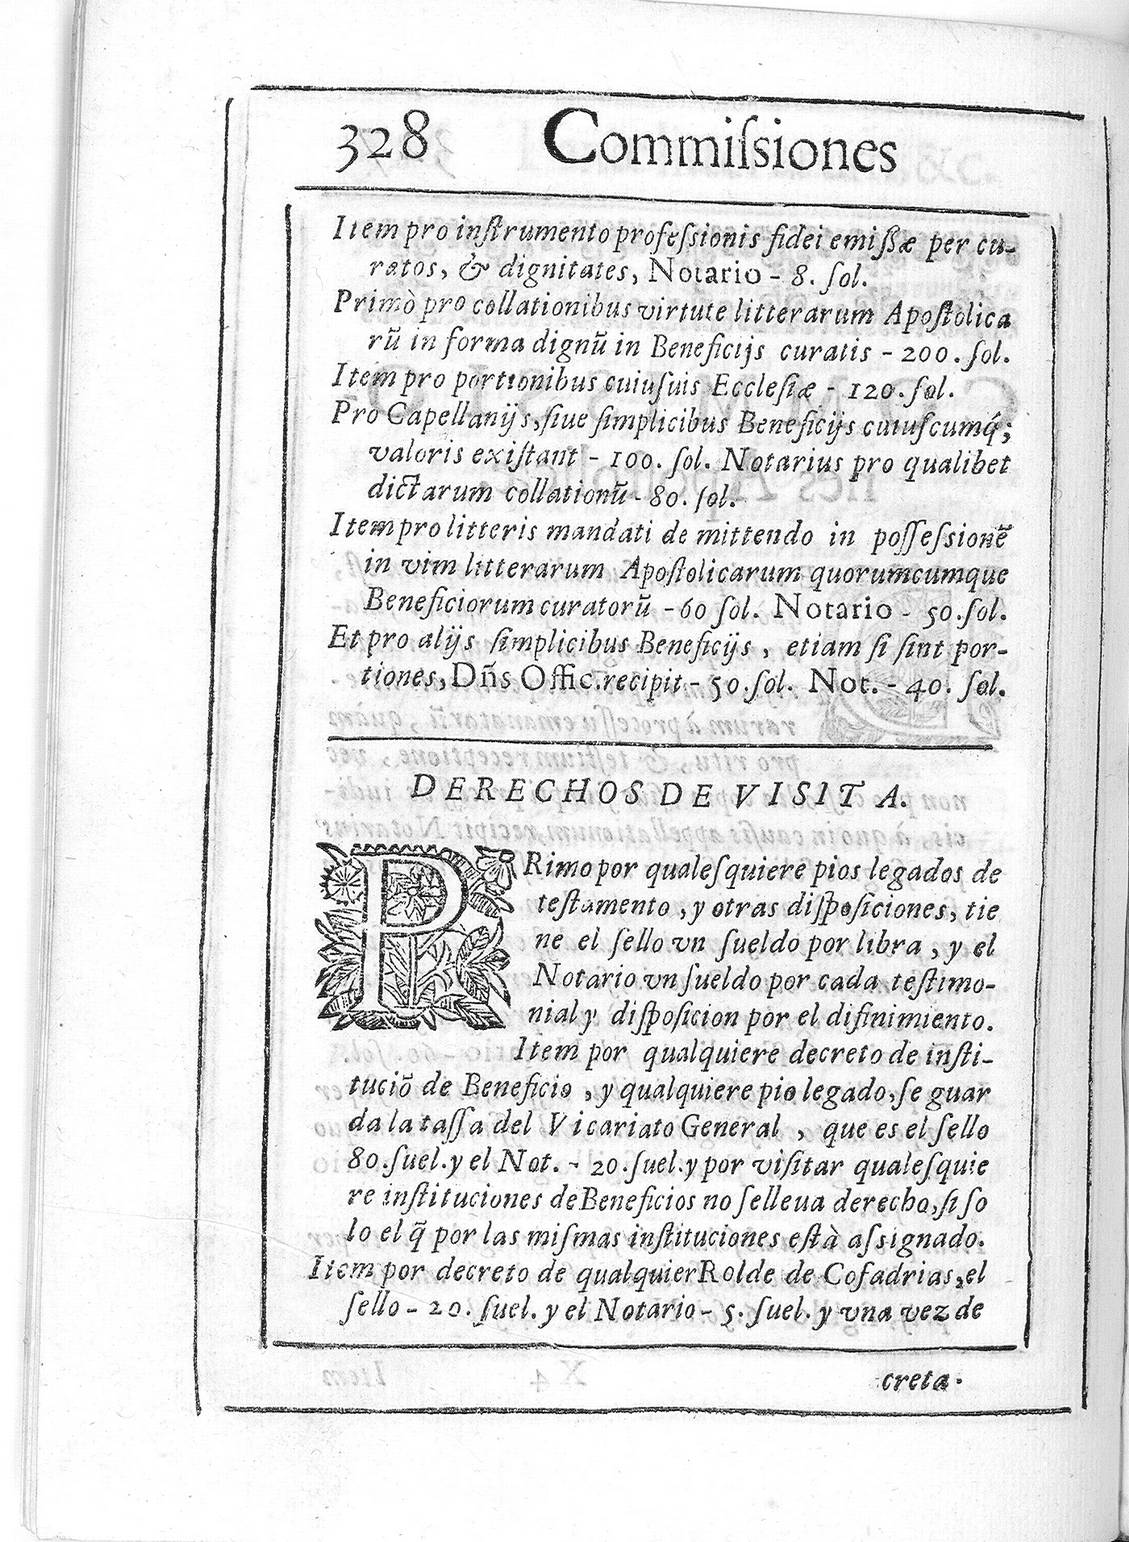 328 Commiſsiones
Item pro inſtrumento profeſsionis fidei emiſſæ per cu-
ratos, & dignitates, Notario - 8. ſol.
Primò pro collationibus virtute litterarum Apoſtolica
rū in forma dignū in Beneficijs curatis - 200. ſol.
Item pro portionibus cuiuſuis Eccleſiæ - 120. ſol.
Pro Capellanijs, ſiue ſimplicibus Beneficijs cuiuſcumq́;
valoris exiſtant - 100. ſol. Notarius pro qualibet
dictarum collationū - 80. ſol.
Item pro litteris mandati de mittendo in poſſeſsionē
in vim litterarum Apoſtolicarum quorumcumque
Beneficiorum curatorū - 60 ſol. Notario - 50. ſol.
Et pro alijs ſimplicibus Beneficijs, etiam ſi ſint por-
tiones, Dñs Offic. recipit - 50. ſol. Not. - 40. ſol.
DERECHOS DE VISITA.
PRimo por qualeſquiere pios legados de
teſtamento, y otras diſpoſiciones, tie
ne el ſello vn ſueldo por libra, y el
Notario vn ſueldo por cada teſtimo-
nial y diſpoſicion por el difinimiento.
Item por qualquiere decreto de inſti-
tuciō de Beneficio, y qualquiere pio legado, ſe guar
da la taſſa del Vicariato General, que es el ſello
80. ſuel. y el Not. - 20. ſuel. y por viſitar qualeſquie
re inſtituciones de Beneficios no ſe lleua derecho, ſi ſo
lo el q̃ por las miſmas inſtituciones eſtà aſsignado.
Item por decreto de qualquier Rolde de Cofadrias, el
ſello - 20. ſuel. y el Notario - 5. ſuel. y vna vez de
creta.